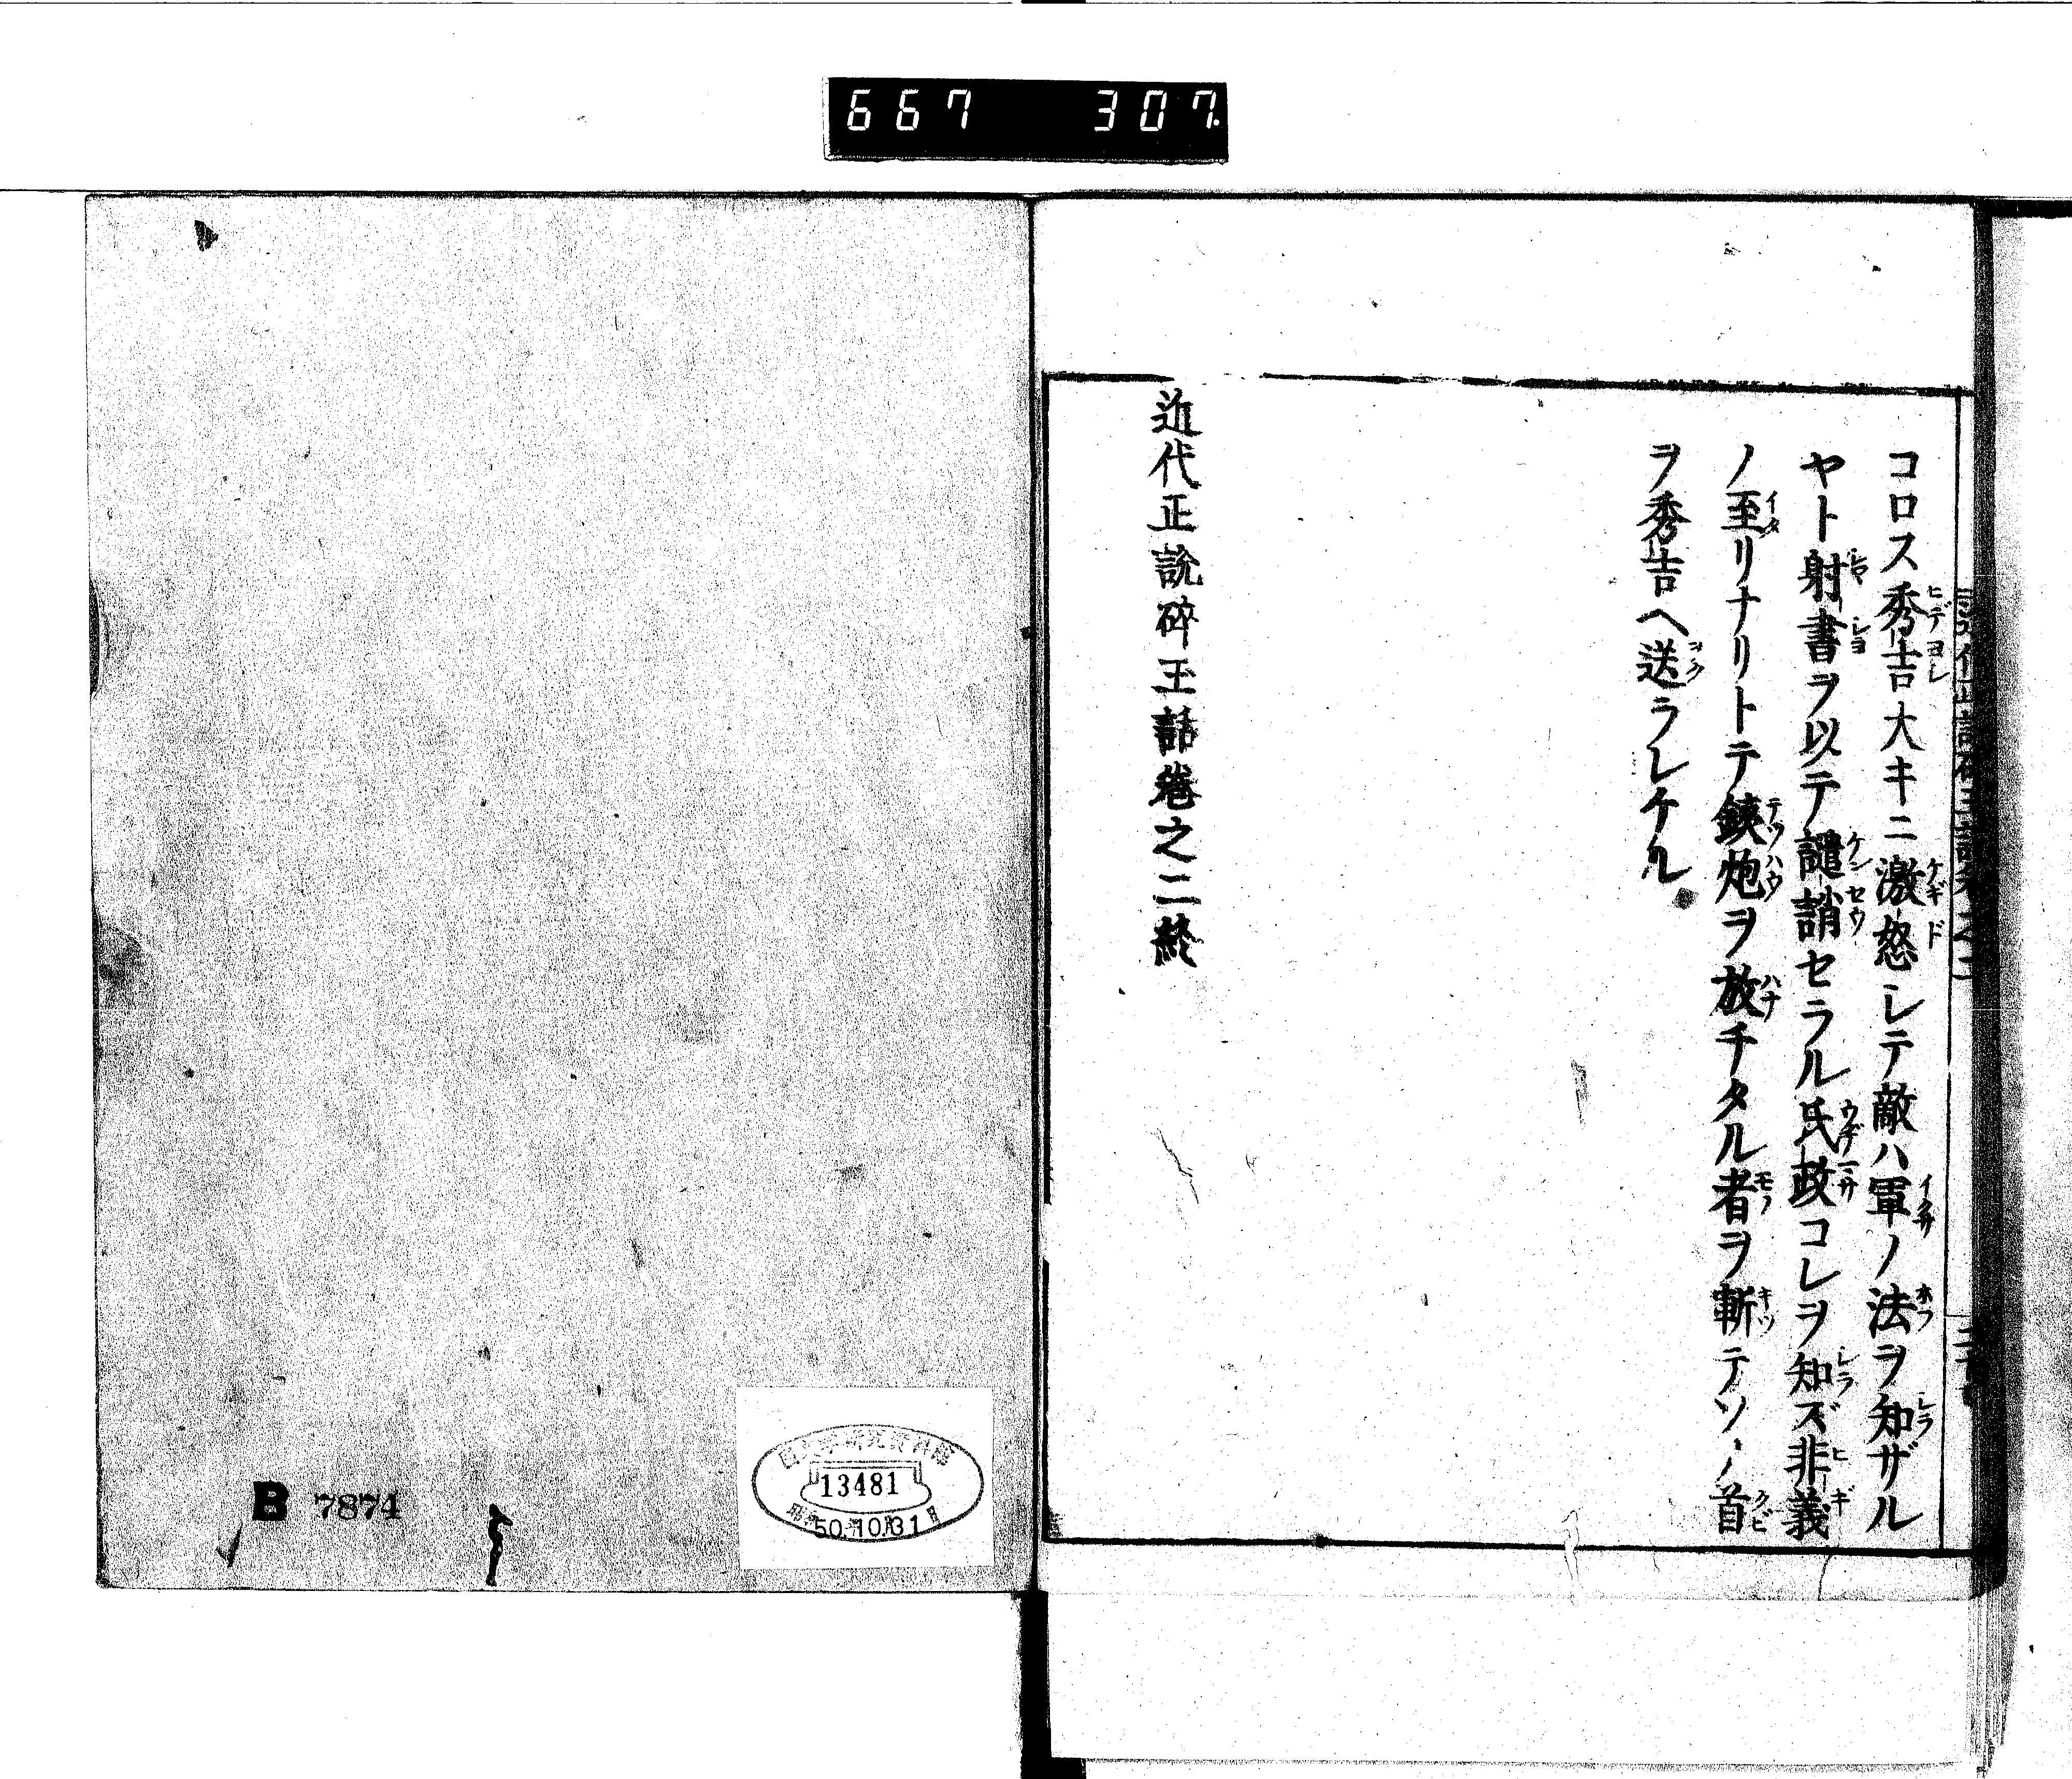 667 307.
コロス秀吉大キニ激怒シテ敵ハ軍ノ法ヲ知ザル
ヤト射書ヲ以テ譴誚セラル氏政コレヲ知ズ非義
ノ至リナリトテ鉄炮ヲ放チタル者ヲ斬テソノ首
ヲ秀吉ヘ送ラレケル
近代正説砕玉話巻之二終
国文学研究資料館
13481
昭和50年10月31日
B 7874